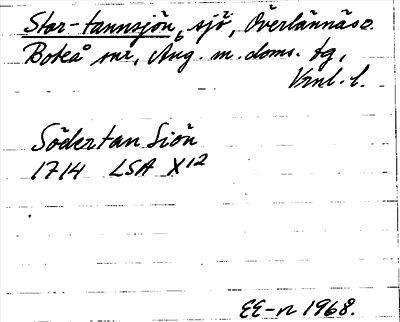 Stor-tannsjön, sjö, Överlännäs s.
Boteå snr, Ång. m. doms. tg,
Vrnl. l.
Södertan Siön
1714 LSA X12
EE-n 1968.